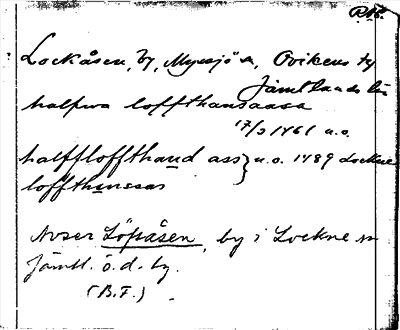 P.15.
Lockåsen, by, Myssjö sn, Ovikens tg
Jämtlands län
halpwa loffthansaasa
17/3 1461 u.o.
halffloffthaud ass } u.o. 1489 Lockne
loffthunssas
Avser Löfsåsen, by i Lockne sn
Jämtl. ö.d. by.
(B.F.)